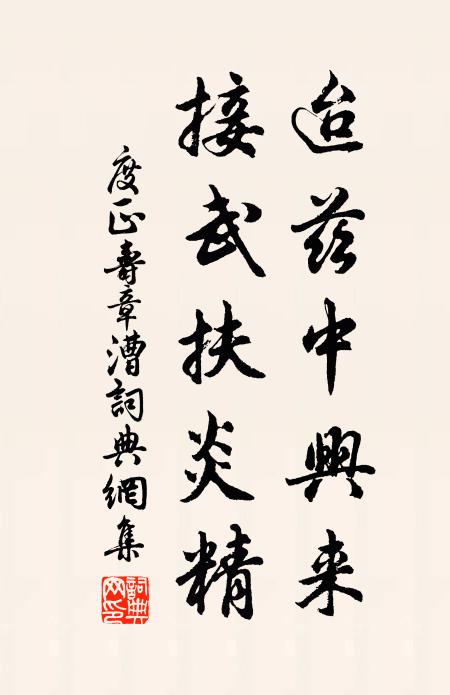 迨茲中興来
接武扶炎精
度正壽章漕詞典網集
詞典網印